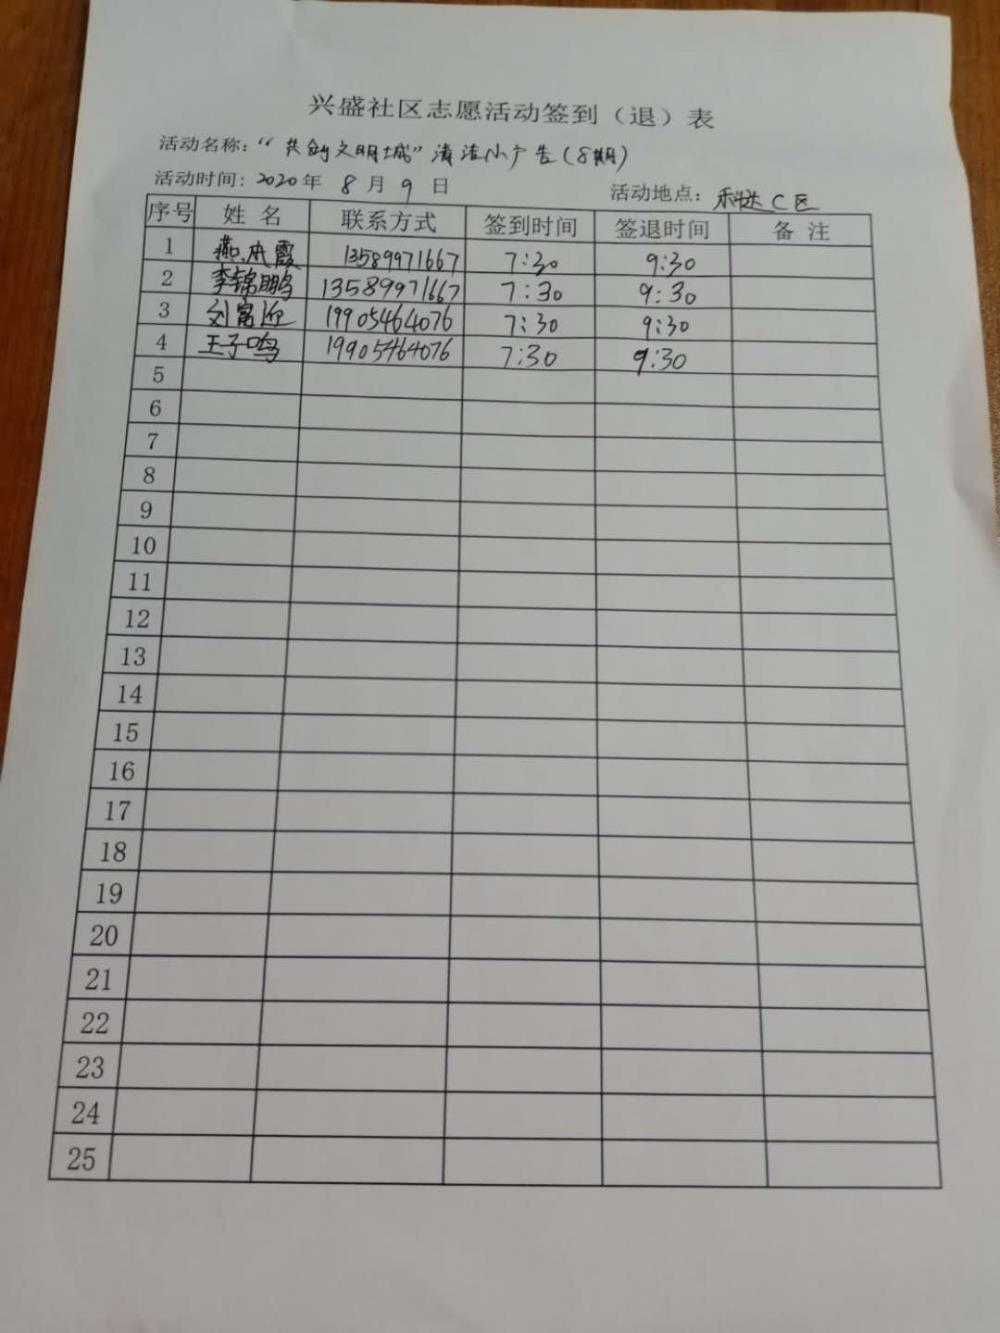 兴盛社区志愿活动签到（退）表
活动名称：“共创文明城”清洁小广告（8期）
活动时间：2020年 8月 9日 活动地点：利达C区
序号 姓名 联系方式 签到时间 签退时间 备注
1 燕霞 13589971667 7:30 9:30
2 李锦鹏 13589971667 7:30 9:30
3 刘富迎 19905464076 7:30 9:30
4 王子鸣 19905464076 7:30 9:30
5
6
7
8
9
10
11
12
13
14
15
16
17
18
19
20
21
22
23
24
25